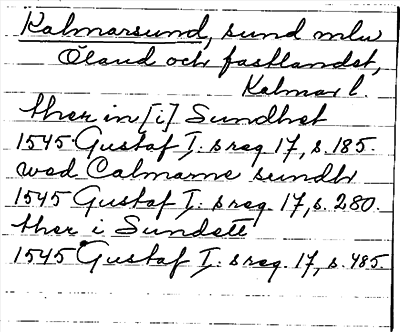 Kalmarsund, sund mlw
Öland och fastlandet,
Kalmar l.
ther in [i] Sundhet
1545 Gustaf I:s reg. 17, s. 185.
wed Calmarne sundh
1545 Gustaf I:s reg. 17, s. 280.
ther i Sundett
1545 Gustaf I:s reg. 17, s. 485.